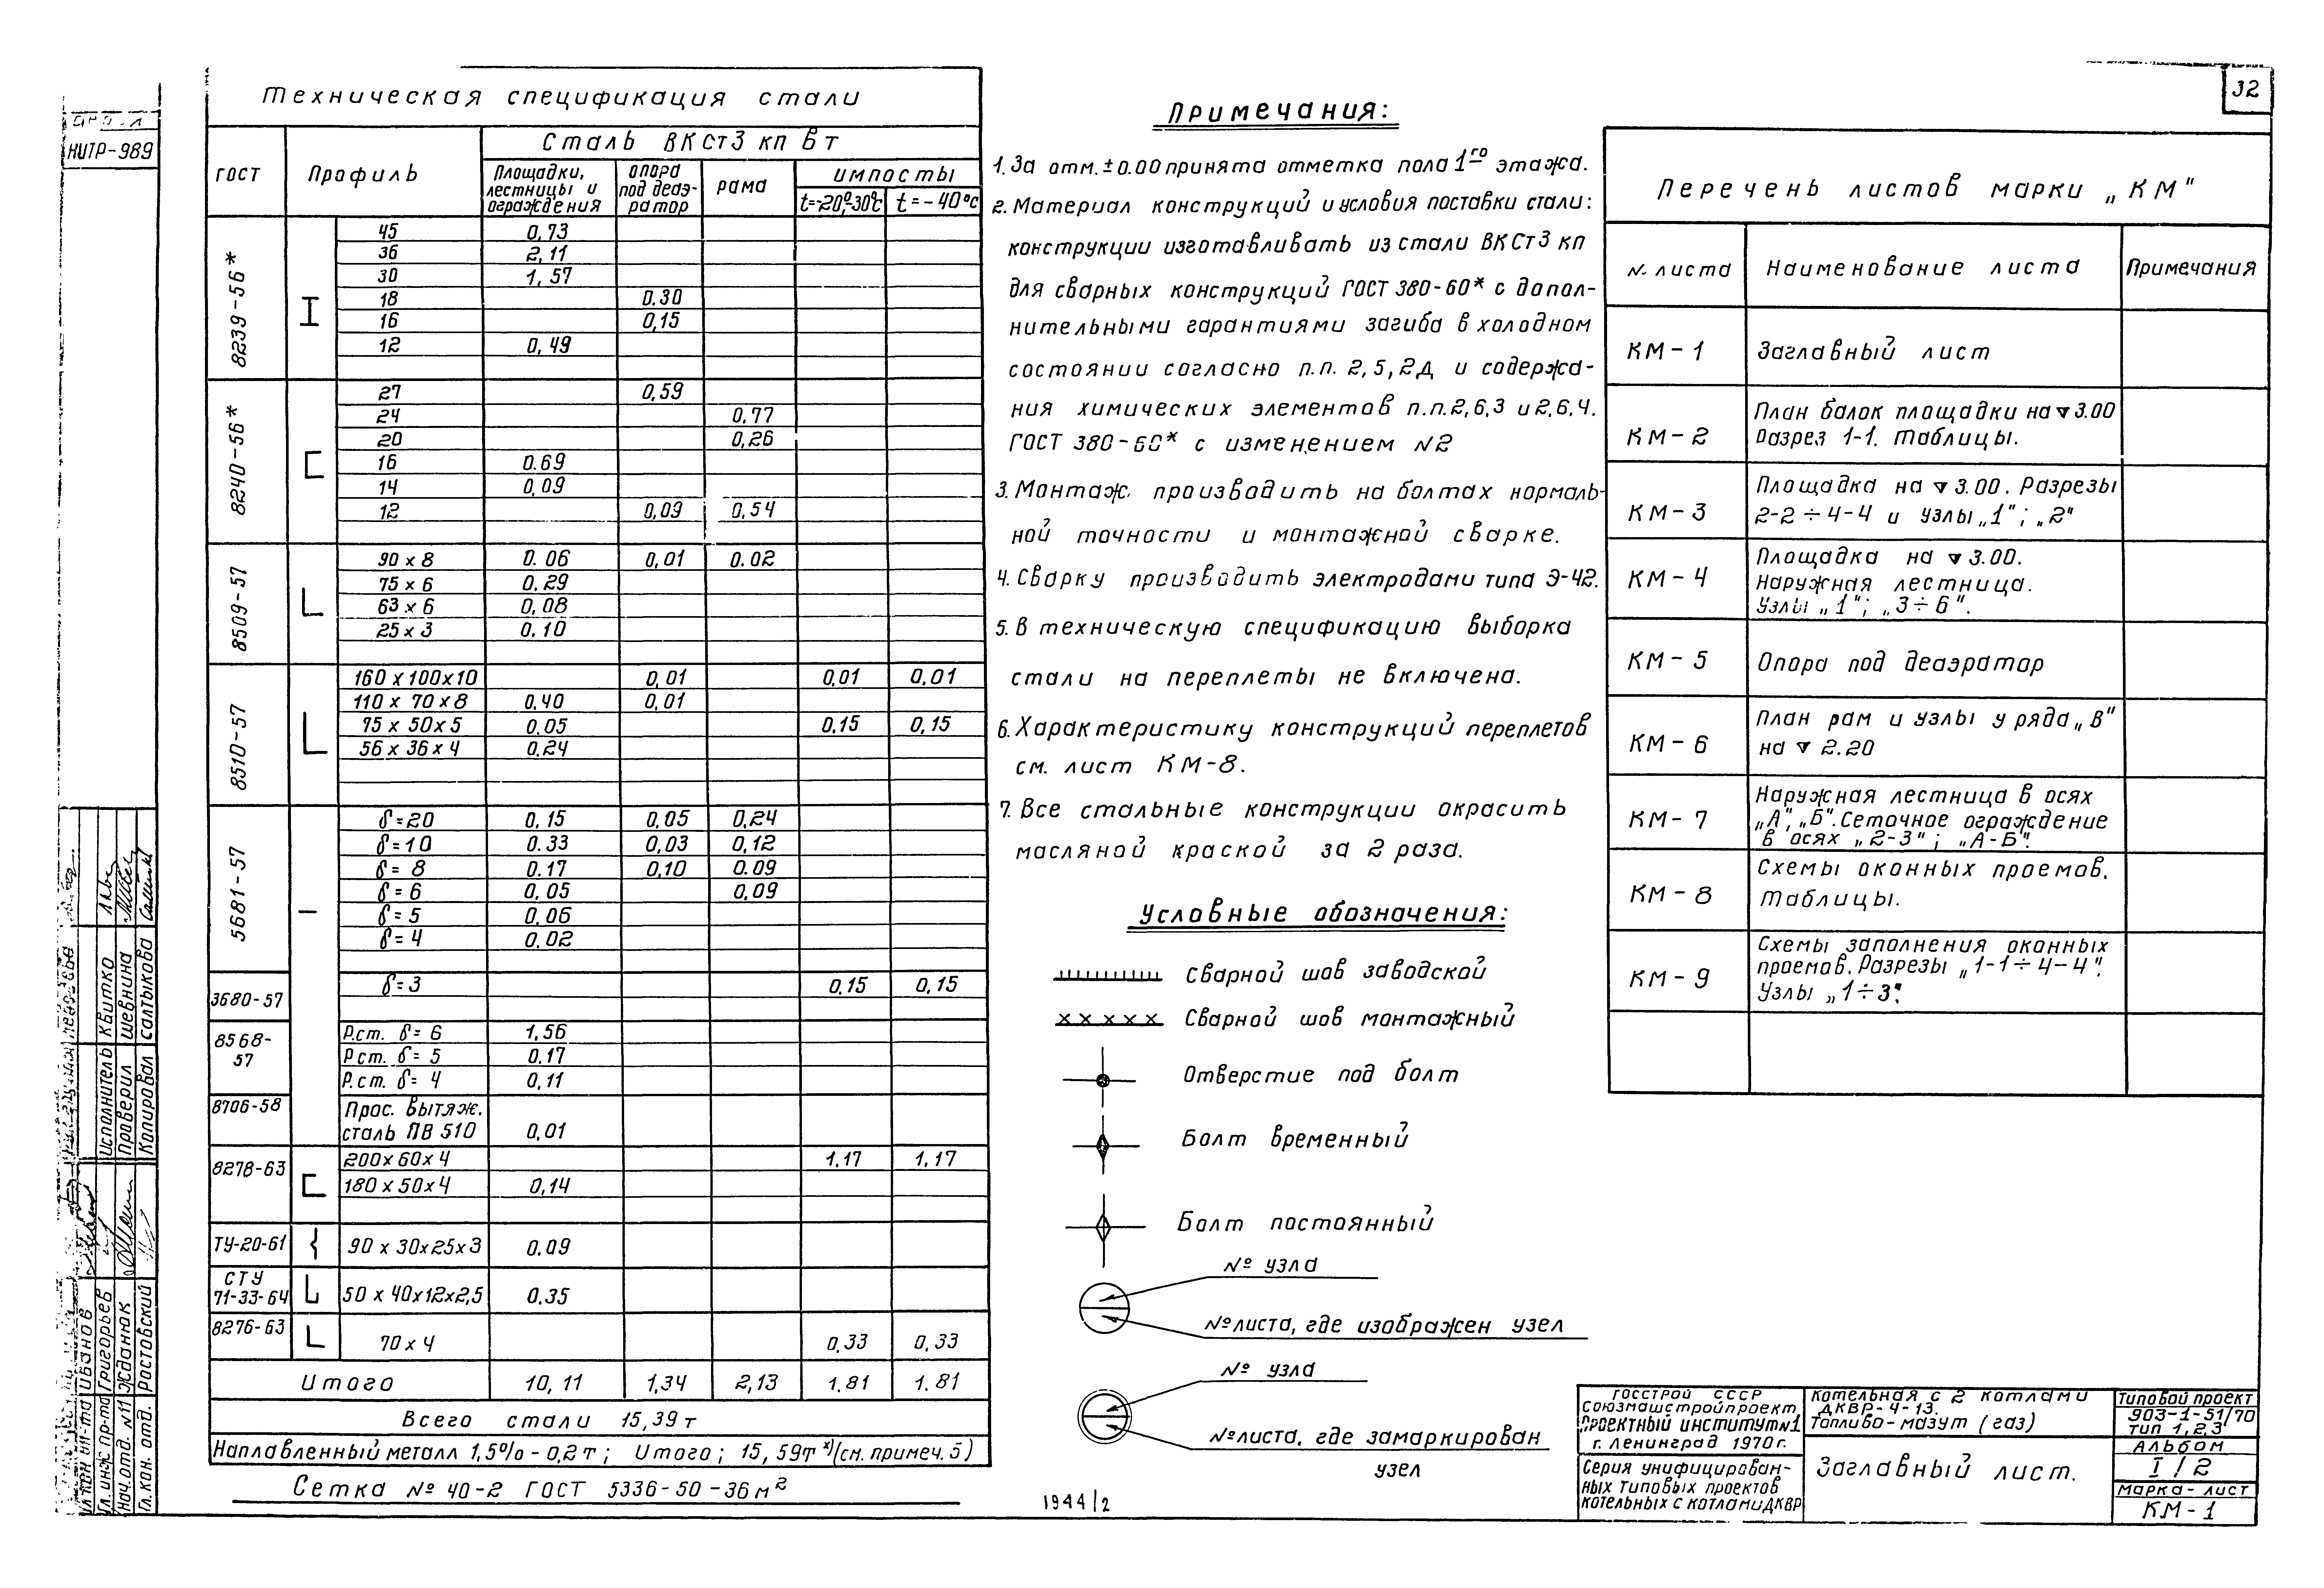 32
НИТР-989
Техническая спецификация стали
ГОСТ
Профиль
Сталь ВКСт3 кп Вт
Площадки, лестницы и ограждения
опора под деаэ-ратор
рама
импосты
t=-20°,-30°с
t=-40°с
8239-56*
45 0,73
36 2,11
30 1,57
18 0.30
16 0,15
12 0,49
8240-56*
27 0,59
24 0,77
20 0,26
16 0.69
14 0,09
12 0,09 0,54
8509-57
90х8 0.06 0,01 0.02
75х6 0,29
63х6 0,08
25х3 0.10
8510-57
160х100х10 0,01 0,01 0,01
110х70х8 0,40 0,01
75х50х5 0.05 0,15 0,15
56х36х4 0,24
5681-57
δ=20 0,15 0,05 0,24
δ=10 0.33 0,03 0,12
δ=8 0.17 0,10 0.09
δ=6 0,05 0,09
δ=5 0.06
δ=4 0.02
3680-57
δ=3 0,15 0,15
8568-57
Р.ст. δ=6 1,56
Р.ст. δ=5 0.17
Р.ст. δ=4 0,11
8706-58
Прос. вытяж.
сталь ПВ 510 0,01
8278-63
200х60х4 1,17 1,17
180х50х4 0,14
ТУ-20-61 90х30х25х3 0.09
СТУ
71-33-64 50х40х12х2,5 0.35
8276-63
70х4 0,33 0,33
Итого 10,11 1,34 2,13 1.81 1.81
Всего стали 15,39 т
Наплавленный металл 1,5% - 0,2 т; Итого; 15,59т*)(см. примеч. 5)
Сетка № 40-2 ГОСТ 5336-50-36м²
Примечания:
1. За отм. ±0.00 принята отметка пола 1го этажа.
2. Материал конструкций и условия поставки стали:
конструкции изготавливать из стали ВКСт3 кп
для сварных конструкций ГОСТ 380-60* с допол-
нительными гарантиями загиба в холодном
состоянии согласно п.п. 2,5,2д и содержа-
ния химических элементов п.п.2,6,3 и 2,6,4.
ГОСТ 380-60* с изменением №2
3. Монтаж производить на болтах нормаль-
ной точности и монтажной сварке.
4. Сварку производить электродами типа Э-42.
5. В техническую спецификацию выборка
стали на переплеты не включена.
6. Характеристику конструкций переплетов
см. лист КМ-8.
7. Все стальные конструкции окрасить
масляной краской за 2 раза.
Условные обозначения:
Сварной шов заводской
Сварной шов монтажный
Отверстие под болт
Болт временный
Болт постоянный
№ узла
№ листа, где изображен узел
№ узла
№ листа, где замаркирован
узел
1944/2
Перечень листов марки „КМ"
№ листа Наименование листа Примечания
КМ-1 Заглавный лист
КМ-2
План балок площадки на ▽3.00
Разрез 1-1. Таблицы.
КМ-3
Площадка на ▽3.00. Разрезы
2-2÷4-4 и узлы „1"; „2"
КМ-4
Площадка на ▽3.00.
Наружная лестница.
Узлы „1"; „3÷6".
КМ-5 Опора под деаэратор
КМ-6
План рам и узлы у ряда „В"
на ▽ 2.20
КМ-7
Наружная лестница в осях
„А", „Б". Сеточное ограждение
в осях „2-3"; „А-Б".
КМ-8
Схемы оконных проемов.
Таблицы.
КМ-9
Схемы заполнения оконных
проемов. Разрезы „1-1÷4-4".
Узлы „1÷3".
Госстрой СССР
Союзмашстройпроект
Проектный институт №1
г. Ленинград 1970г.
Серия унифицирован-
ных типовых проектов
котельных с котлами ДКВР
Котельная с 2 котлами
ДКВР-4-13.
Топливо-мазут (газ)
Заглавный лист.
Типовой проект
903-1-51/70
тип 1,2,3
Альбом
I/2
Марка-лист
КМ-1
Исполнитель Квитко
Проверил Шевнина
Копировал Салтыкова
Иванов
Гл. инж. пр-та Григорьев
Нач. отд. №11 Жданюк
Гл. кон. отд. Ростовский